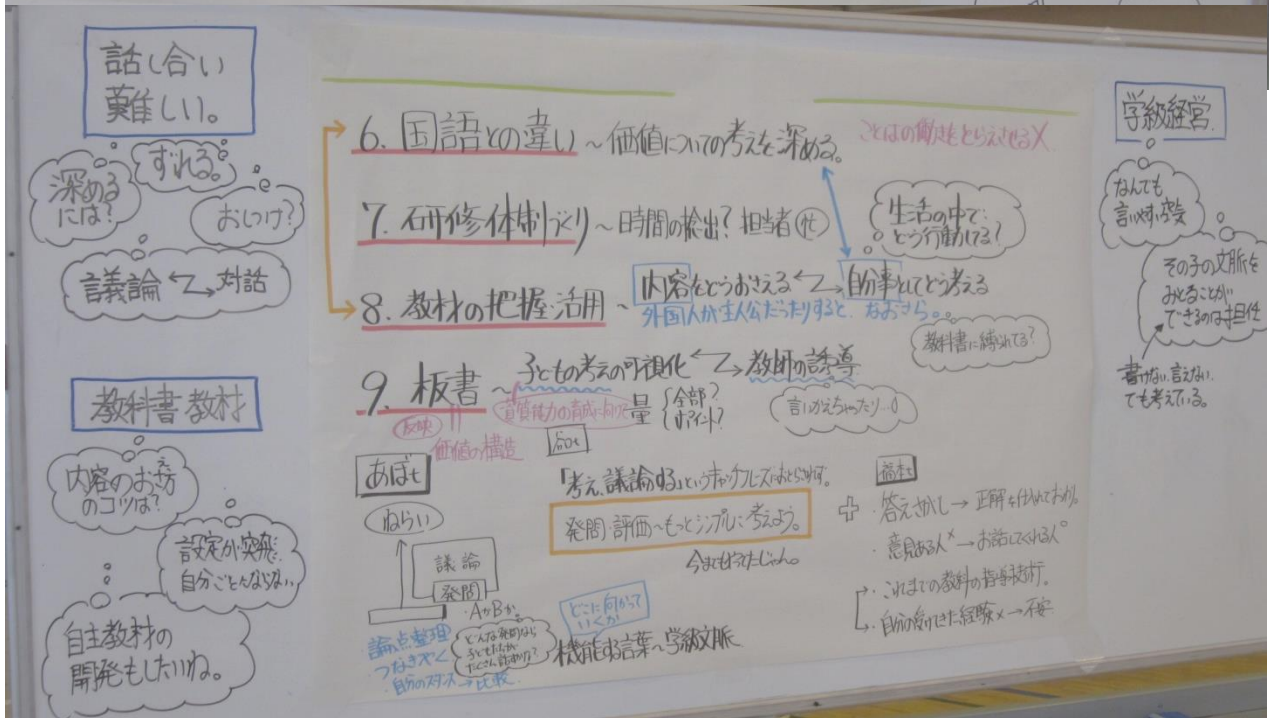 話し合い
難しい。
深める
には?
ずれる。
おしつけ?
議論 ←→ 対話
教科書 教材
内容のおさえ方
のコツは?
設定が突飛で
自分ごとんならない
自主教材の
開発もしたいね。
6. 国語との違い ~ 価値についての考えを深める。
ことばの働きをとらえさせる X
7. 研修体制づくり ~ 日時間の検出? 担当者 忙
生活の中で
どう行動してる?
8. 教材の把握・活用 ~ 内容をどうおさえる ←→ 自分事としてどう考える
外国人が主人公だったりすると、なおさら。
教科書に縛られてる?
9. 板書 ~ 子どもの考えの可視化 ←→ 教師の誘導
反映
価値の構造
資質能力の育成に向けて
量 { 全部?
ポイント?
言いかえちゃったり…
あぼt
ねらい
議論
発問
・AかBか。
論点整理
つなぎやく
・自分のスタンス → 比較
たくさん話すかな?
「考え、議論する」というキャッチフレーズにおどらされず。
発問・評価~もっとシンプルに考えよう。
今までもやってたじゃん。
どこに向かって
いくか
機能する言葉~学級文脈
福本t
・答えさがし → 正解を仕入れておわり。
・意見ある人× → お話してくれる人○
・これまでの教科の指導技術。
・自分の受けてきた経験× → 不安
学級経営
なんでも
言いやすい
その子の文脈を
みとることが
できるのは担任
書けない、言えない、
ても考えている。